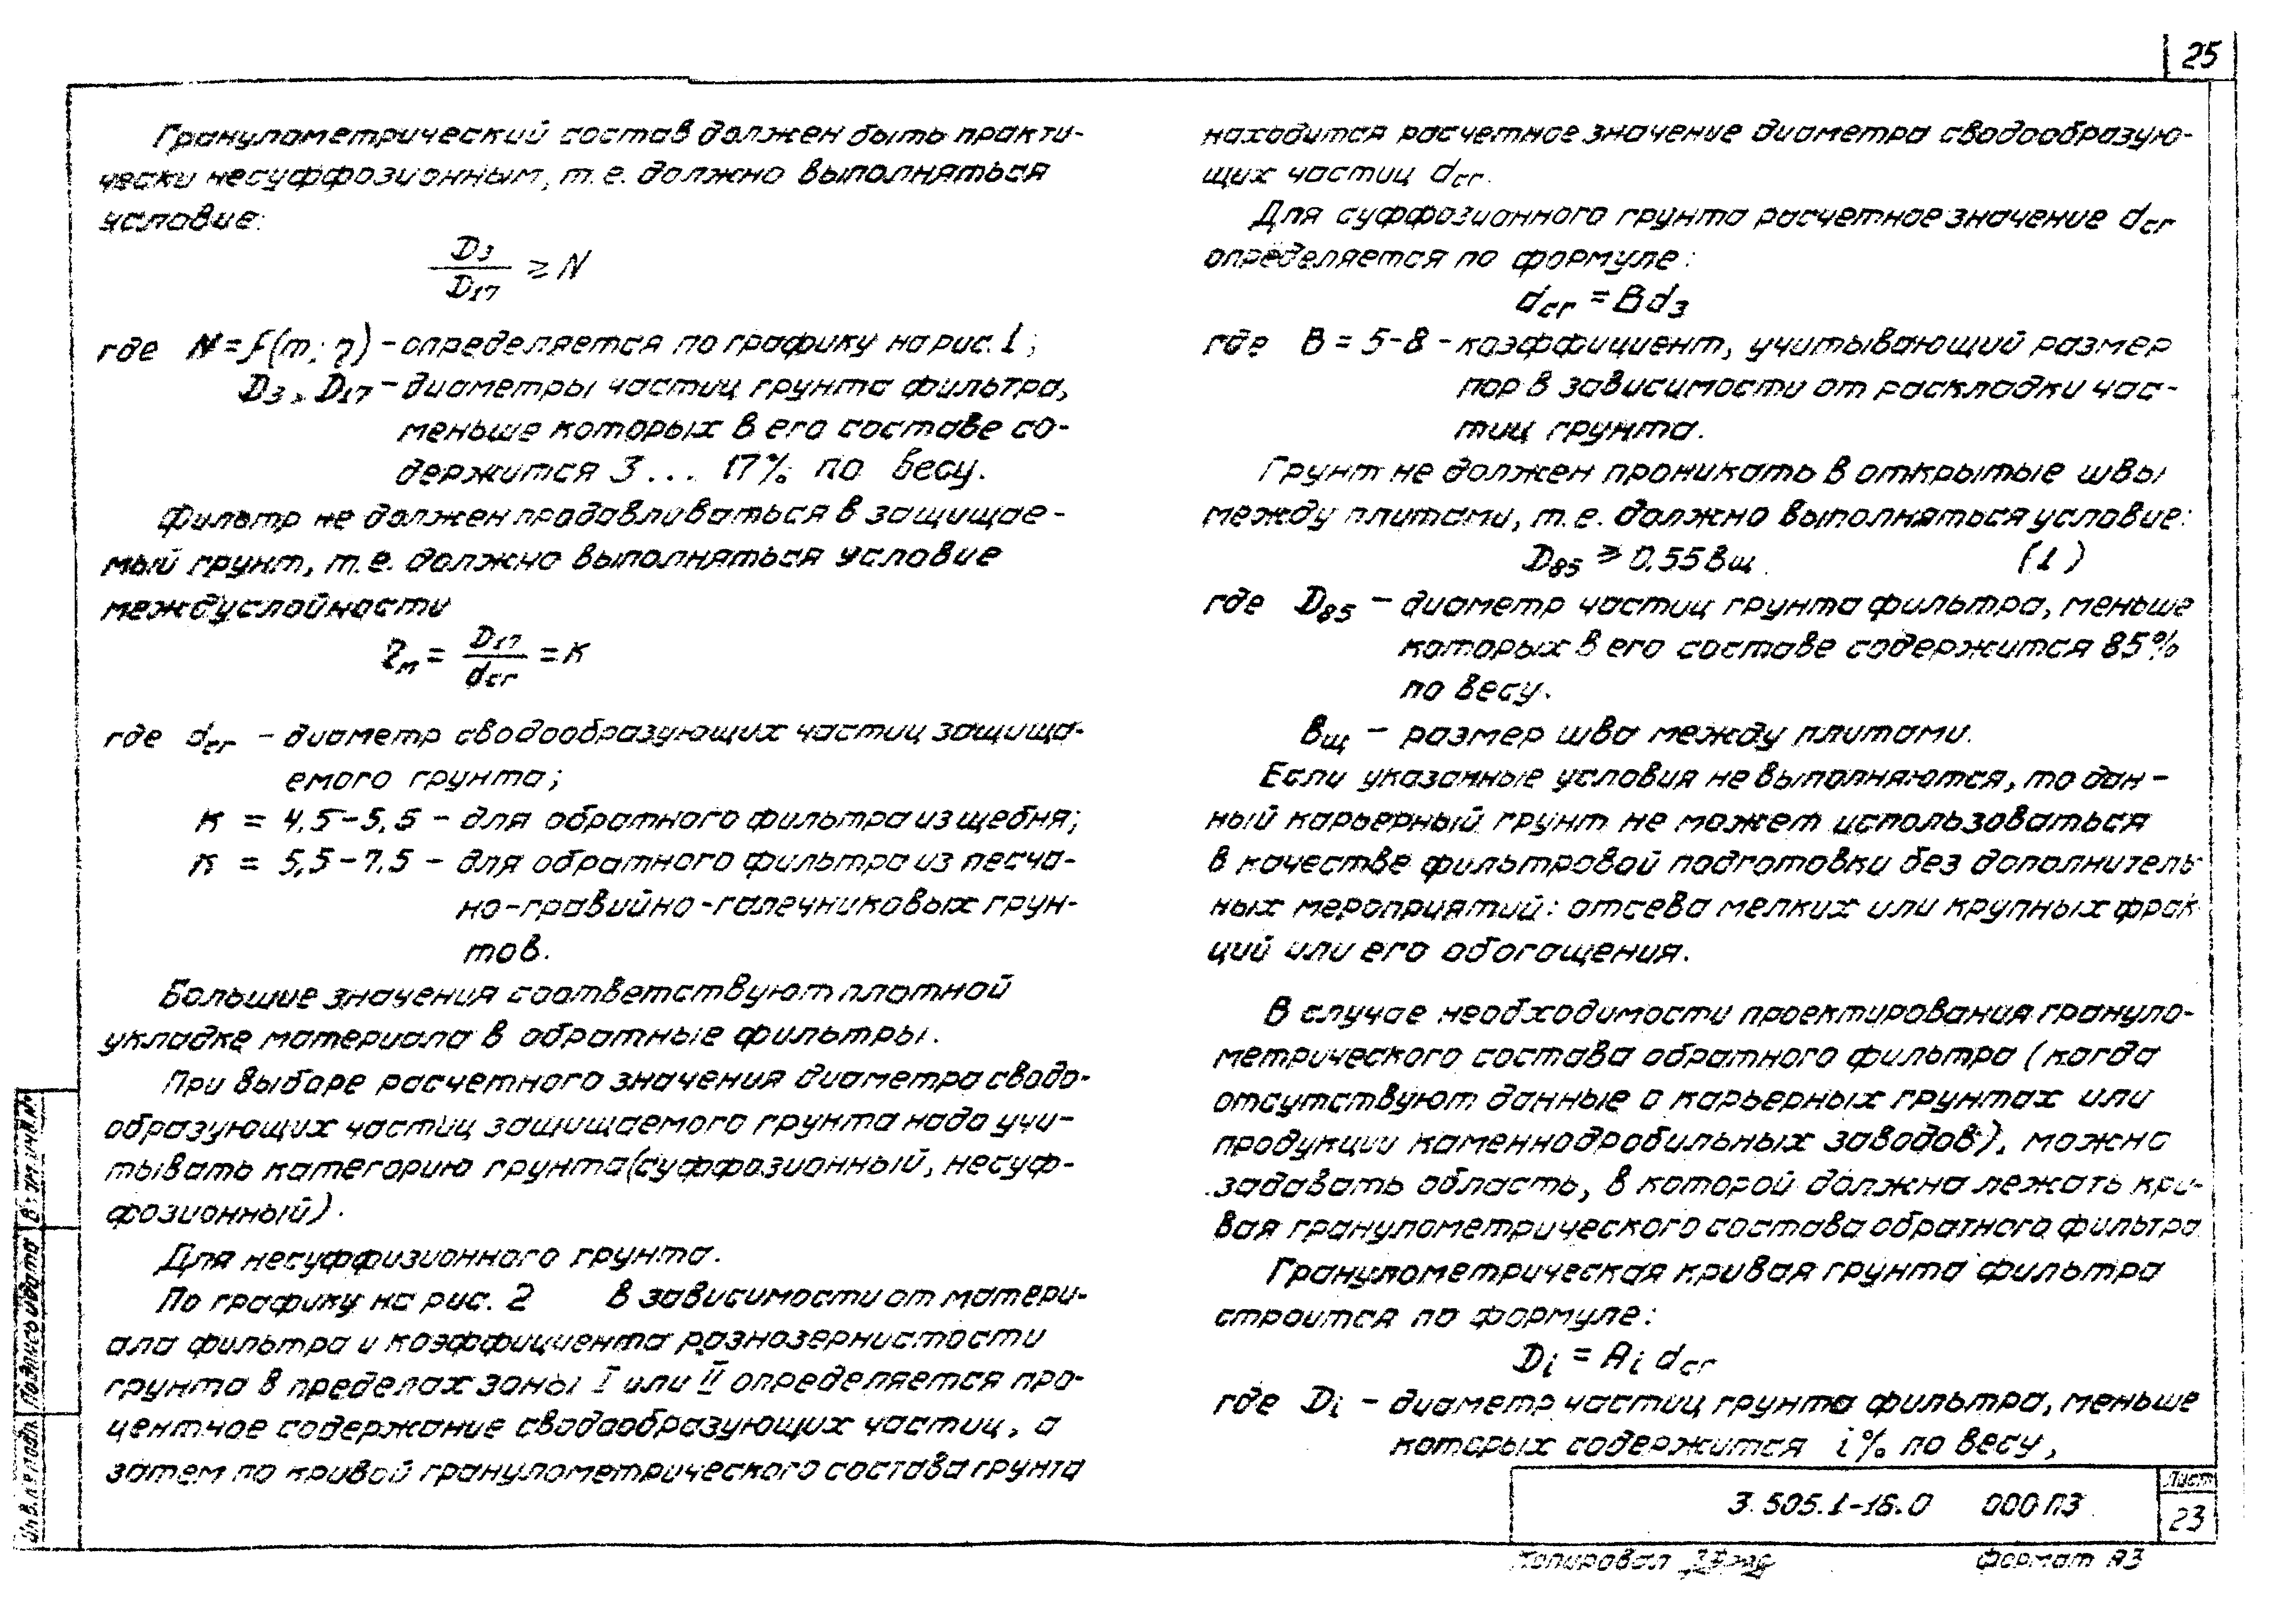 25
Гранулометрический состав должен быть практи-
чески несуффозионным, т.е. должно выполняться
условие:
D3/D17 ≥ N
где N = f(m; η) - определяется по графику на рис. 1;
D3, D17 - диаметры частиц грунта фильтра,
меньше которых в его составе со-
держится 3... 17% по весу.
Фильтр не должен продавливаться в защищае-
мый грунт, т.е. должно выполняться условие
междуслойности
ηм = D17/dcr = K
где dcr - диаметр сводообразующих частиц защища-
емого грунта;
K = 4,5-5,5 - для обратного фильтра из щебня;
K = 5,5-7,5 - для обратного фильтра из песча-
но-гравийно-галечниковых грун-
тов.
Большие значения соответствуют плотной
укладке материала в обратные фильтры.
При выборе расчетного значения диаметра сводо-
образующих частиц защищаемого грунта надо учи-
тывать категорию грунта (суффозионный, несуф-
фозионный).
Для несуффизионного грунта.
По графику на рис. 2 в зависимости от матери-
ала фильтра и коэффициента разнозернистости
грунта в пределах зоны I или II определяется про-
центное содержание сводообразующих частиц, а
затем по кривой гранулометрического состава грунта
находится расчетное значение диаметра сводообразую-
щих частиц dcr.
Для суффозионного грунта расчетное значение dcr
определяется по формуле:
dcr = B d3
где B = 5-8 - коэффициент, учитывающий размер
пор в зависимости от раскладки час-
тиц грунта.
Грунт не должен проникать в открытые швы
между плитами, т.е. должно выполняться условие:
D85 ≥ 0,55 вщ. (1)
где D85 - диаметр частиц грунта фильтра, меньше
которых в его составе содержится 85%
по весу.
вщ - размер шва между плитами.
Если указанные условия не выполняются, то дан-
ный карьерный грунт не может использоваться
в качестве фильтровой подготовки без дополнитель-
ных мероприятий: отсева мелких или крупных фрак-
ций или его обогащения.
В случае необходимости проектирования грануло-
метрического состава обратного фильтра (когда
отсутствуют данные о карьерных грунтах или
продукции каменнодробильных заводов), можно
задавать область, в которой должна лежать кри-
вая гранулометрического состава обратного фильтра
Гранулометрическая кривая грунта фильтра
строится по формуле:
Di = Ai dcr
где Di - диаметр частиц грунта фильтра, меньше
которых содержится i% по весу,
3.505.1-16.0 000ПЗ
Лист
23
Копировал
Формат А3
Инв.№ подл. Подпись и дата Взам.инв.№